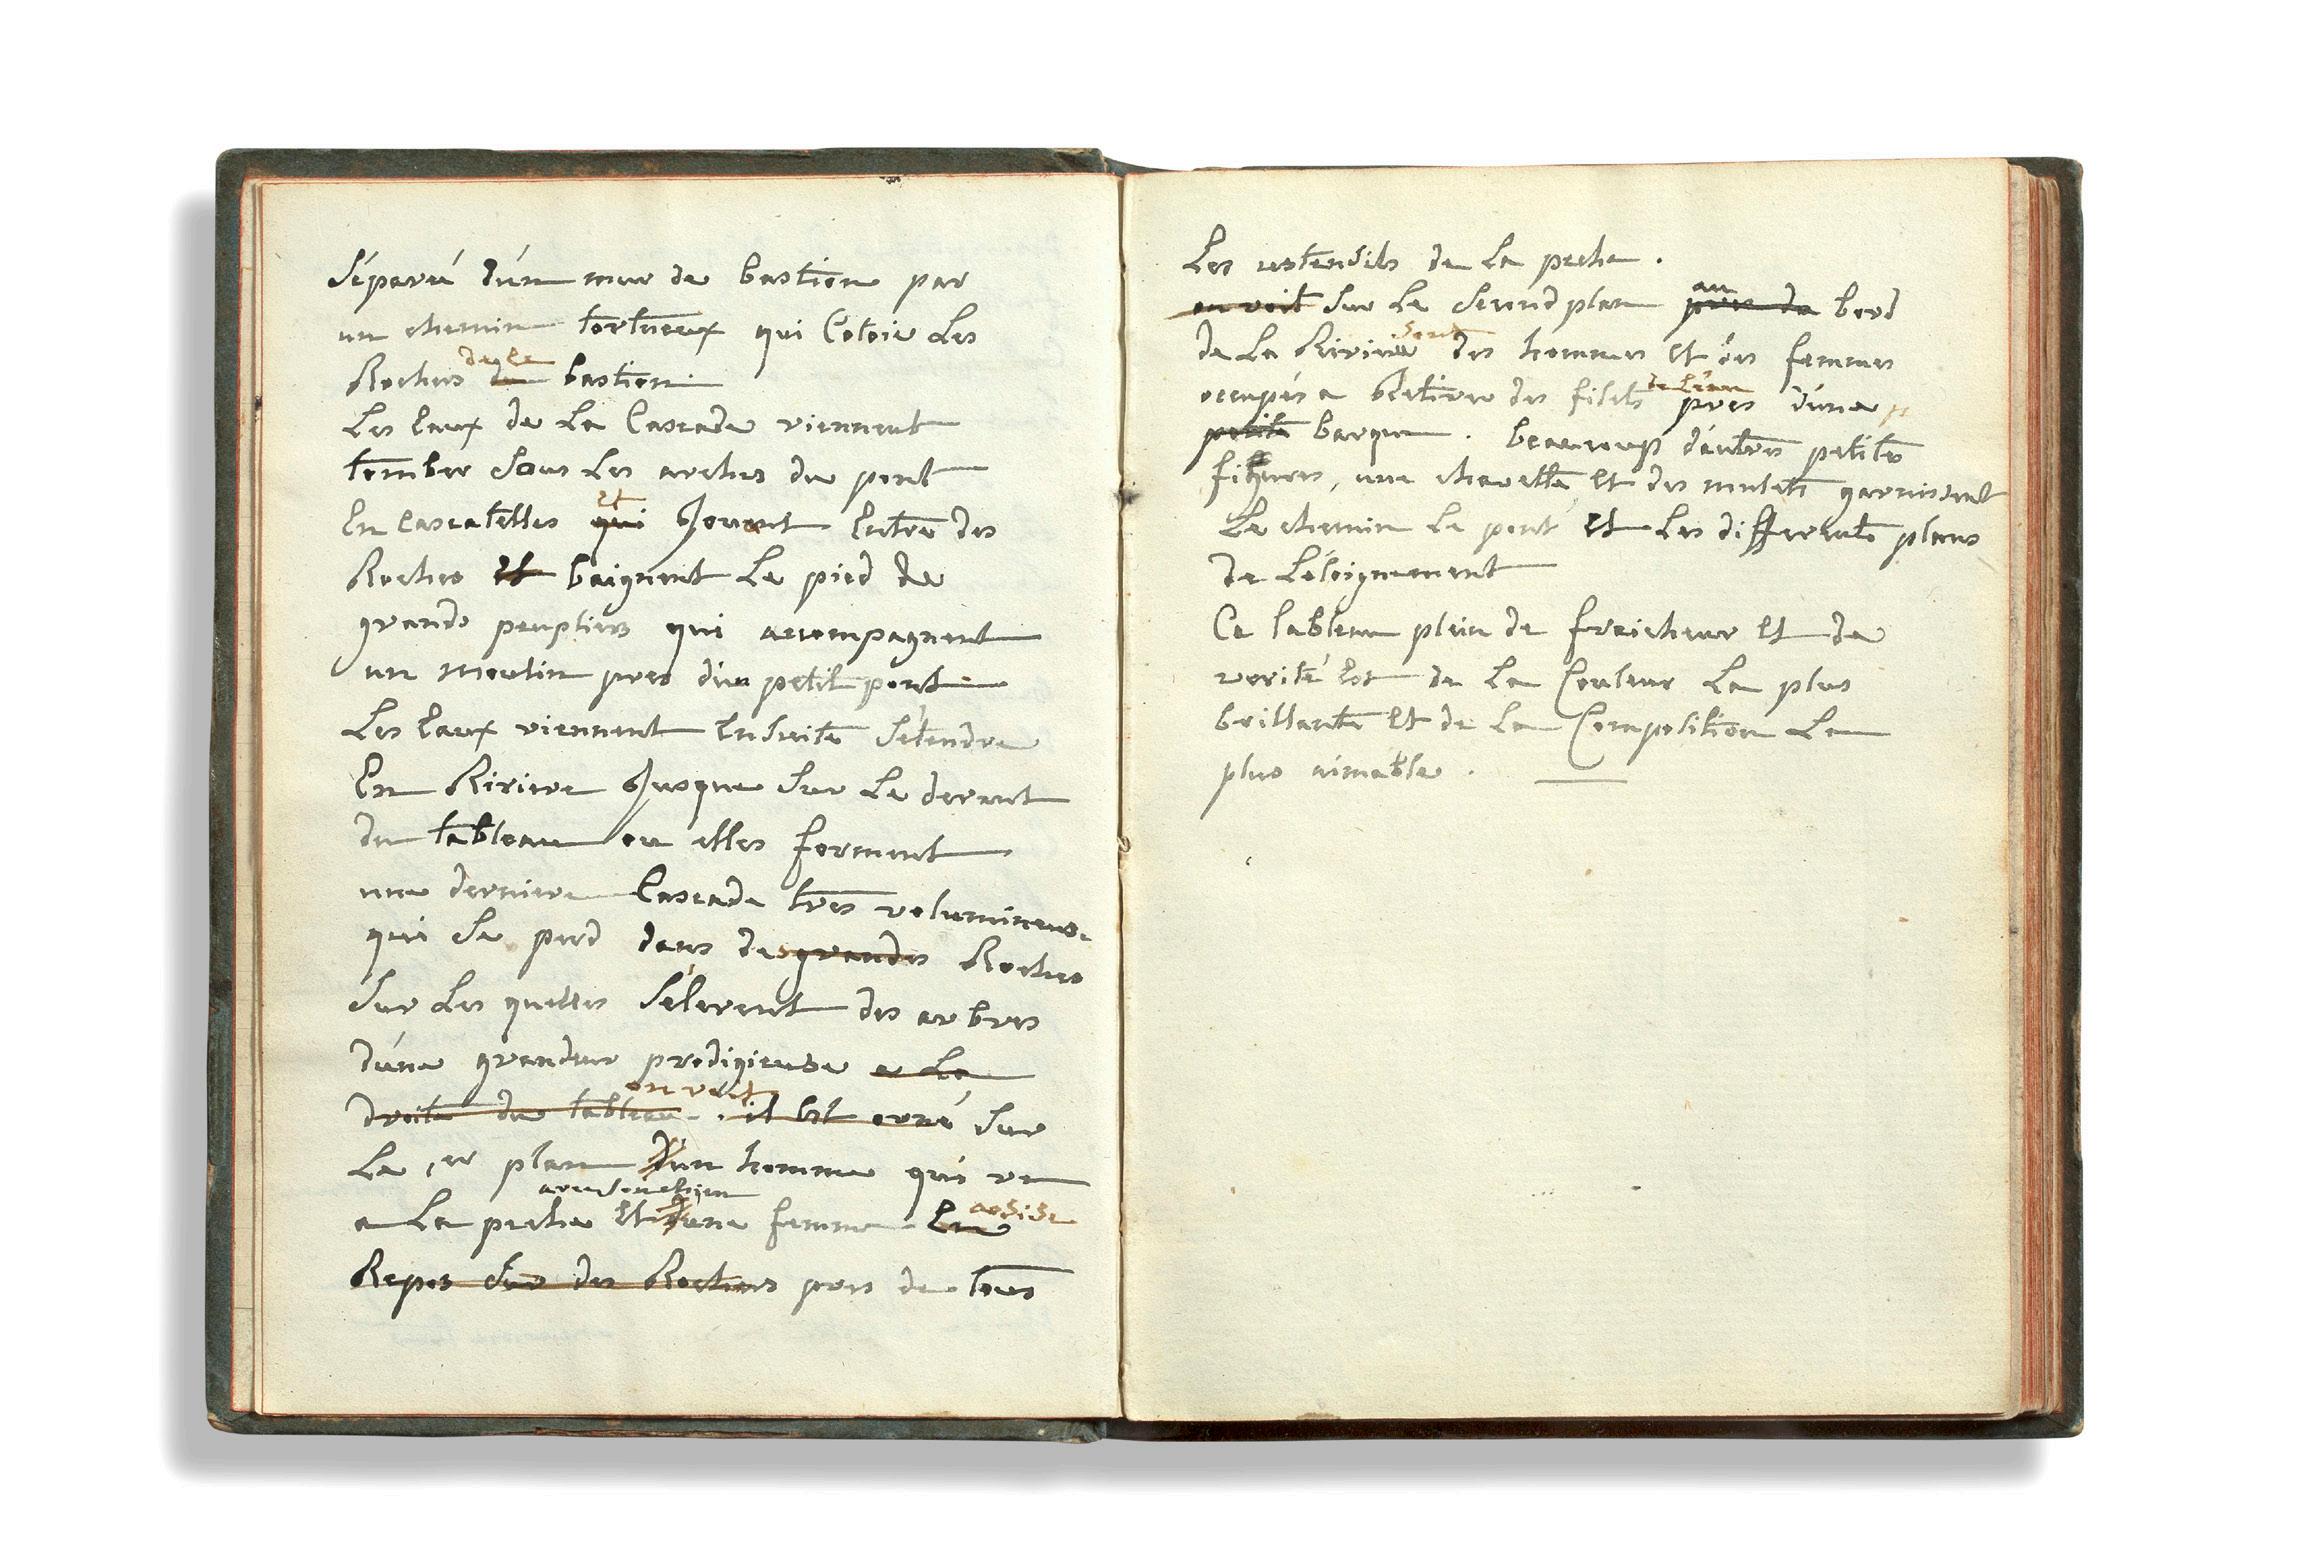 Séparé d'un mur de bastion par
un chemin tortueux qui Cotoie Les
de ce
Rochers du bastion
Les Eaux de La Cascade viennent
tomber sous Les arches du pont
Et
En Cascatelles qui Jouent Entre des
Roches Et baignent Le pied de
grands peupliers qui accompagnent
un moulin pres d'un petit pont
Les Eaux viennent Ensuite S'étendre
En Riviere Jusque Sur Le devant
du tableau ou elles forment
une derniere Cascade tres volumineuse
qui Se perd dans des grandes Roches
Sur Les quelles S'élevent des arbres
d'une grandeur prodigieuse a La
on voit
droite du tableau . il Est orné Sur
Le 1er plan d'un homme qui va
avec son chien
a La peche Et d'une femme En
assise
Repos Sur des Rochers pres de tous
Les ustensils de La peche .
au
on voit Sur Le Second plan pres du bord
sont
de La Riviere des hommes Et des femmes
de L'eau
occupés a Retirer des filets pres d'une
petite barque . beaucoup d'autres petites
figures, une charette Et des mulets garnissent
Le chemin Le pont Et Les differents plans
de L'éloignement
Ce tableau plein de fraicheur Et de
verité Est de La Couleur La plus
brillante Et de La Composition La
plus aimable .